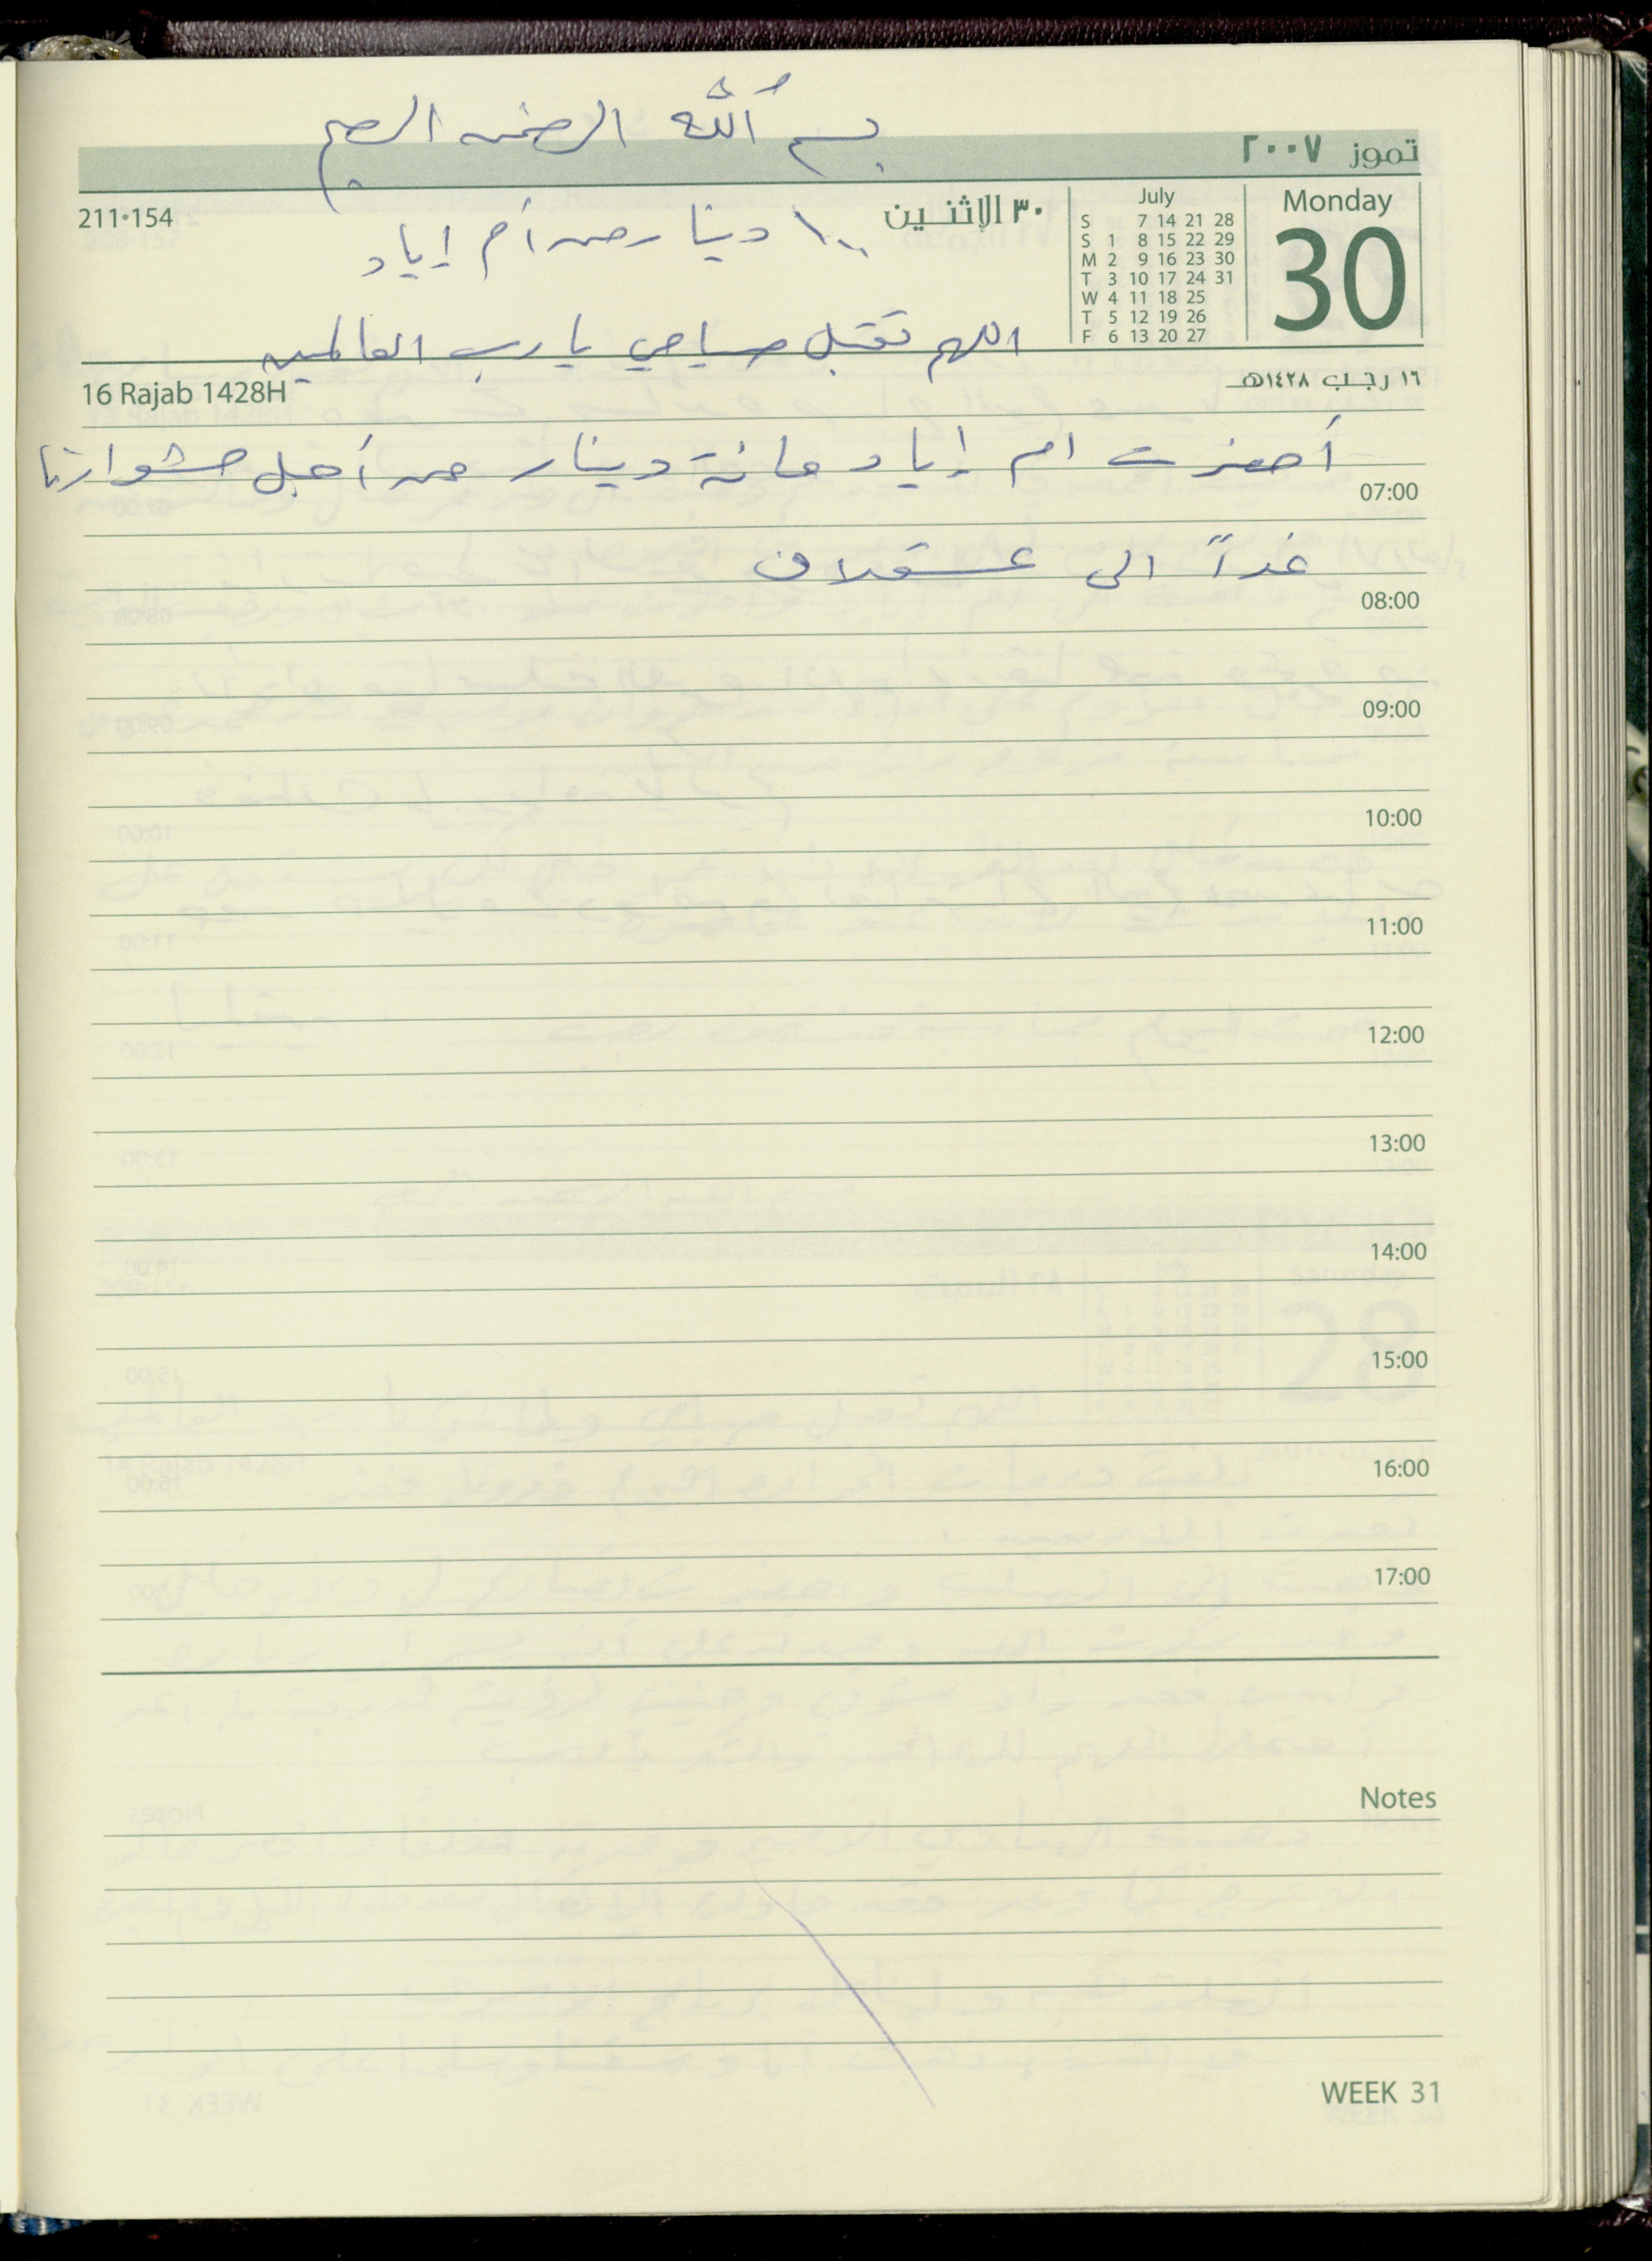 بسم الله الرحمن الرحيم
تموز ٢٠٠٧
Monday
30
July
S 7 14 21 28
S 1 8 15 22 29
M 2 9 16 23 30
T 3 10 17 24 31
W 4 11 18 25
T 5 12 19 26
F 6 13 20 27
٣٠ الإثنين
211•154
١٠٠ دينار من أم إياد
اللهم تقبل صيامي يا رب العالمين
١٦ رجب ١٤٢٨هـ
16 Rajab 1428H
أحضرت ام إياد مائة دينار من أجل مشوارنا
07:00
غداً الى عسقلان
08:00
09:00
10:00
11:00
12:00
13:00
14:00
15:00
16:00
17:00
Notes
WEEK 31